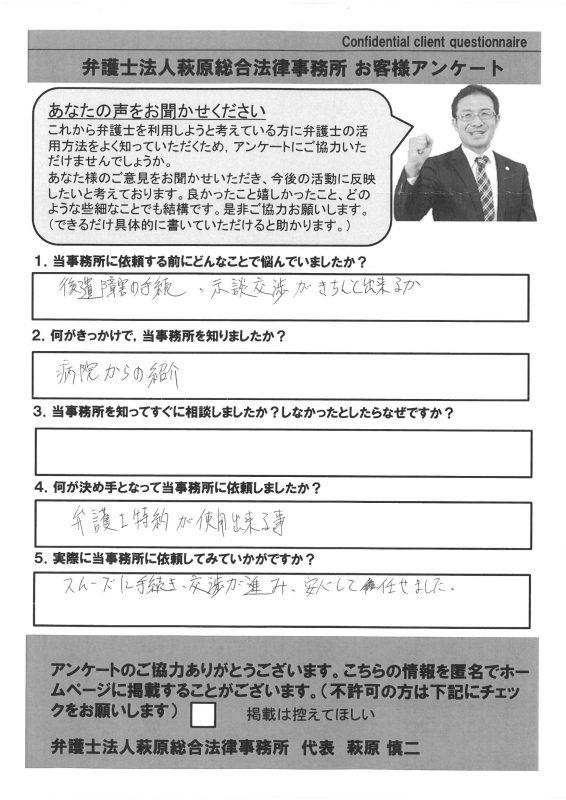 Confidential client questionnaire
弁護士法人萩原総合法律事務所 お客様アンケート
あなたの声をお聞かせください
これから弁護士を利用しようと考えている方に弁護士の活
用方法をよく知っていただくため，アンケートにご協力いた
だけませんでしょうか。
あなた様のご意見をお聞かせいただき、今後の活動に反映
したいと考えております。良かったこと嬉しかったこと、どの
ような些細なことでも結構です。是非ご協力お願いします。
（できるだけ具体的に書いていただけると助かります。）
1．当事務所に依頼する前にどんなことで悩んでいましたか？
後遺障害の手続、示談交渉がきちんと出来るか
2．何がきっかけで，当事務所を知りましたか？
病院からの紹介
3．当事務所を知ってすぐに相談しましたか？しなかったとしたらなぜですか？
4．何が決め手となって当事務所に依頼しましたか？
弁護士特約が使用出来る事
5．実際に当事務所に依頼してみていかがですか？
スムーズに手続き、交渉が進み、安心して任せました。
アンケートのご協力ありがとうございます。こちらの情報を匿名でホー
ムページに掲載することがございます。（不許可の方は下記にチェッ
クをお願いします） 掲載は控えてほしい
弁護士法人萩原総合法律事務所 代表 萩原 慎二